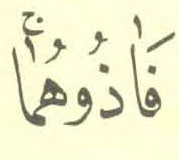 فَاٰذُوهُمَاۚ